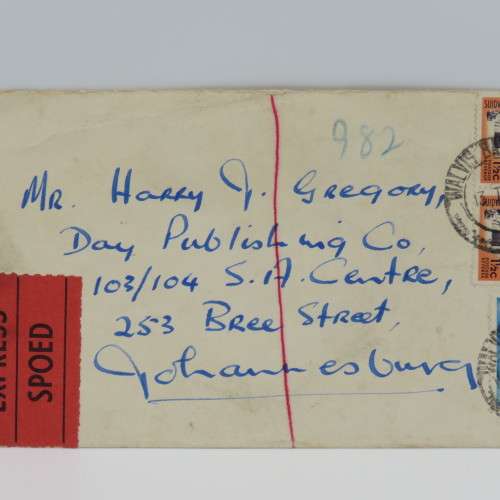 982
Mr. Harry J. Gregory,
Day Publishing Co,
103/104 S.A. Centre,
253 Bree Street,
Johannesburg
EXPRESS
SPOED
1½c
1½c
WALVIS